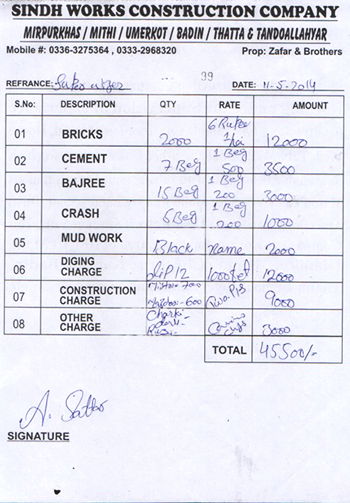 SINDH WORKS CONSTRUCTION COMPANY
MIRPURKHAS / MITHI / UMERKOT / BADIN / THATTA & TANDOALLAHYAR
Mobile #: 0336-3275364 , 0333-2968320 Prop: Zafar & Brothers
REFRANCE: 99 DATE: 11-5-2014
S.No: DESCRIPTION QTY RATE AMOUNT
01 BRICKS 2000 6 12000
02 CEMENT 7 Beg 1 Beg 500 3500
03 BAJREE 15 Beg 1 Beg 200 3000
04 CRASH 5 Beg 1 Beg 200 1000
05 MUD WORK Black name 2000
06 DIGING CHARGE 12 1000 12000
07 CONSTRUCTION CHARGE 700 600 9000
08 OTHER CHARGE 3000
TOTAL 45500/-
SIGNATURE